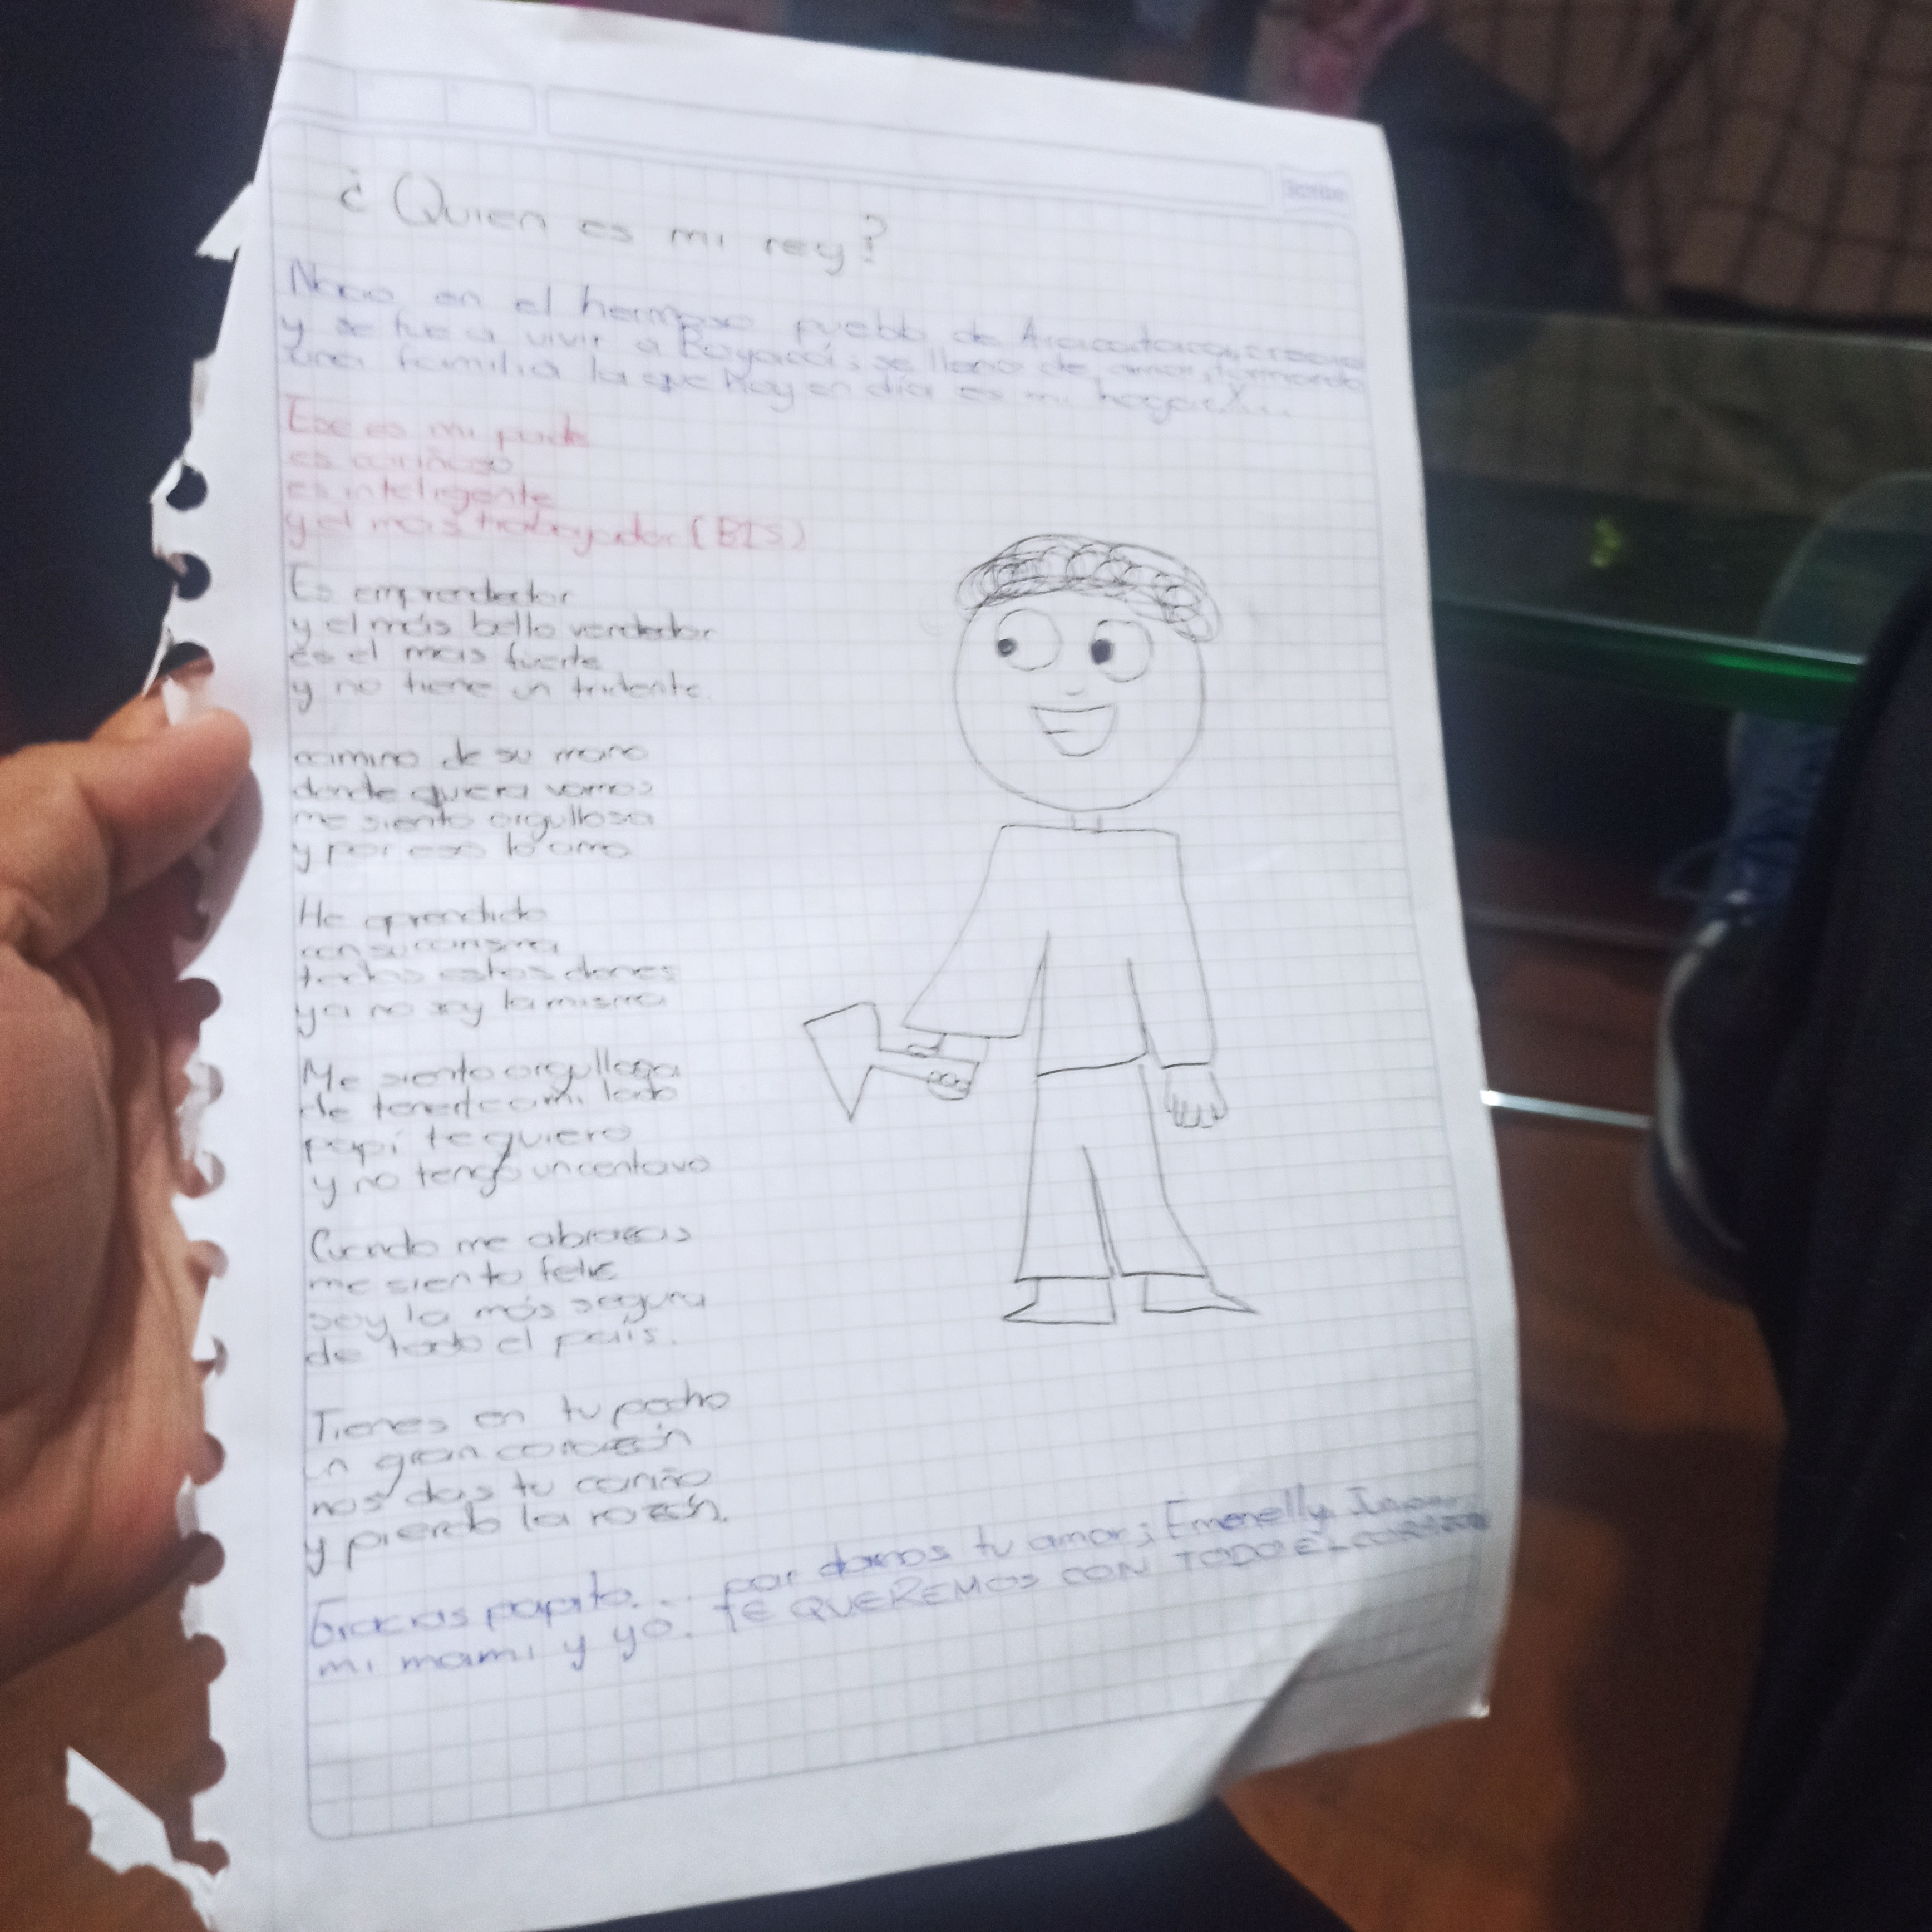 Scribe
¿Quien es mi rey?
Nacio en el hermoso pueblo de Aracataca, crecio
y se fue a vivir a Boyacá; se lleno de amor, formando
una familia la que hoy en día es mi hogar!...
Ese es mi padre
es cariñoso
es inteligente
y el mas trabajador (BIS)
Es emprendedor
y el más bello vendedor
es el mas fuerte
y no tiene un tridente.
camino de su mano
donde quiera vamos
me siento orgullosa
y por eso lo amo
He aprendido
con su carisma
todos estos dones
ya no soy la misma
Me siento orgullosa
de tenerte a mi lado
papi te quiero
y no tengo un centavo
Cuando me abrazas
me siento feliz
soy la más segura
de todo el país.
Tienes en tu pecho
un gran corazón
nos das tu cariño
y pierdo la razón.
Gracias papito... por darnos tu amor; Emerelly,
mi mami y yo. TE QUEREMOS CON TODO EL CORAZON